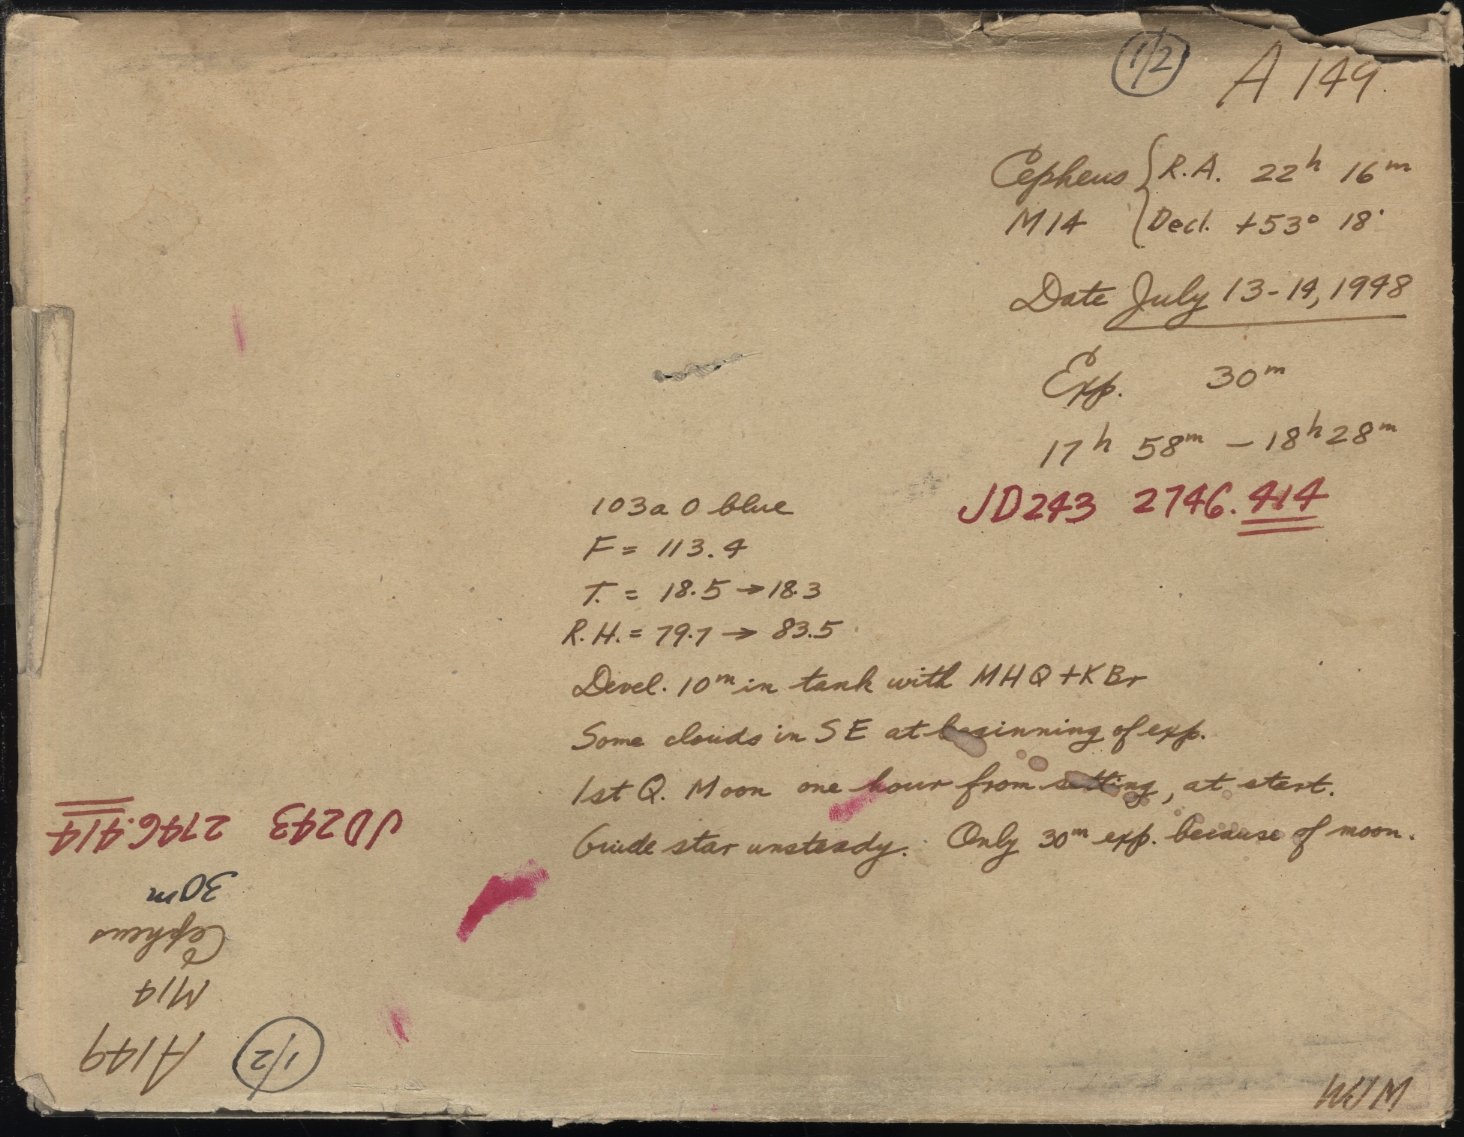 1/2 A 149
Cepheus { R.A. 22h 16m
M14 { Decl. +53° 18'
Date July 13-14, 1948
Exp. 30m
17h 58m – 18h 28m
JD243 2746.414
103a O blue
F = 113.4
T. = 18.5 → 18.3
R.H. = 79.7 → 83.5
Devel. 10m in tank with MHQ + KBr
Some clouds in SE at beginning of exp.
1st Q. Moon one hour from setting, at start.
Guide star unsteady. Only 30m exp. because of moon.
1/2 A149
M14
Cepheus
30m
JD243 2746.414